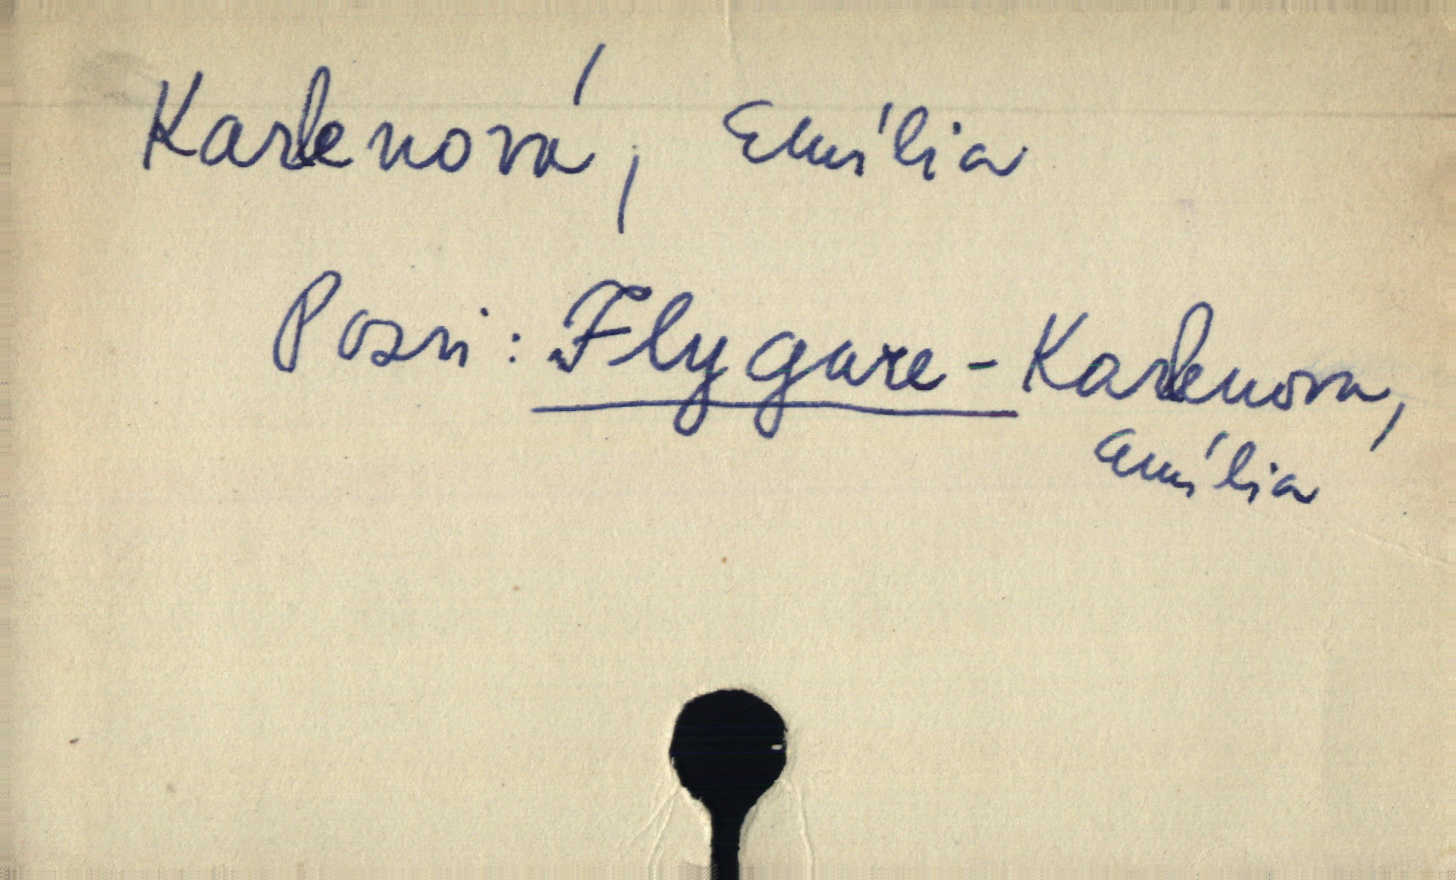 Karlenová, Emília
Pozri: Flygare-Karlenova,
Emília